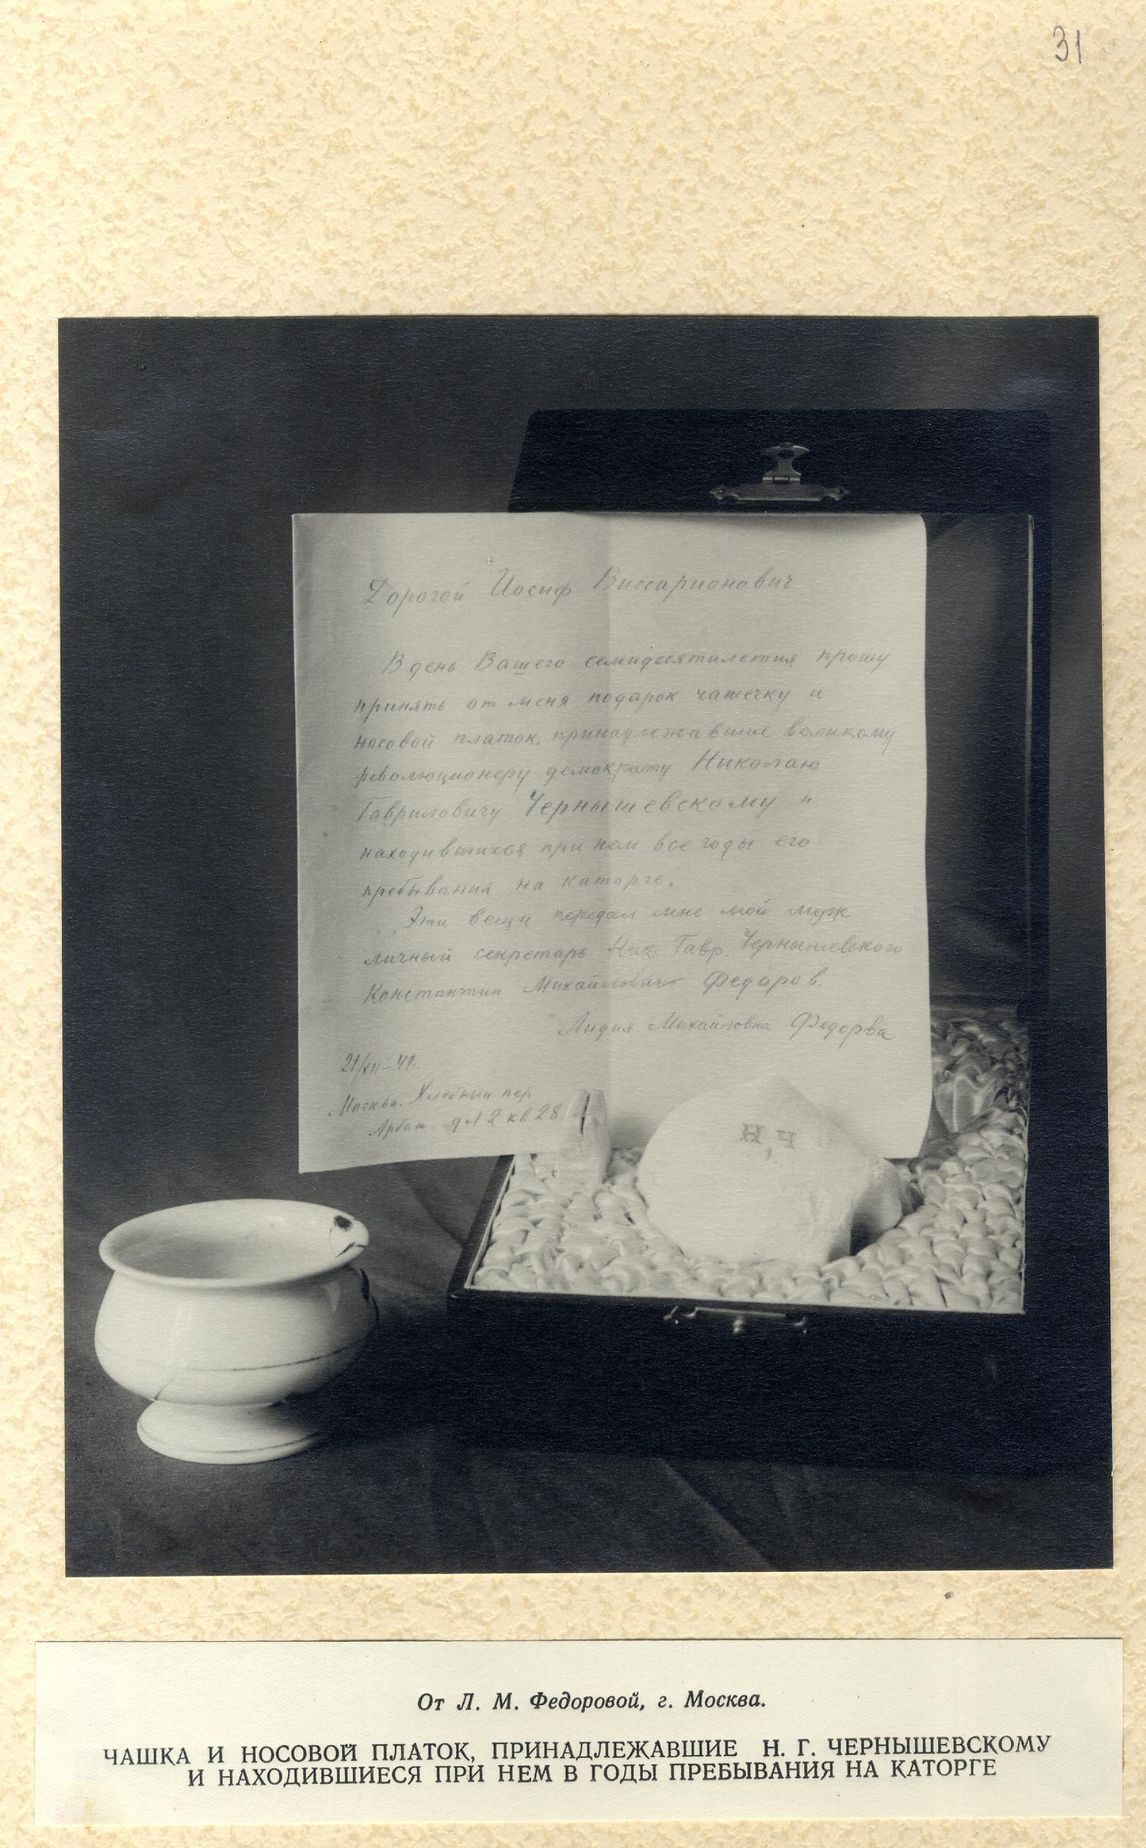 31
Дорогой Иосиф Виссарионович
В день Вашего семидесятилетия прошу
принять от меня подарок чашечку и
носовой платок, принадлежавшие великому
революционеру демократу Николаю
Гавриловичу Чернышевскому и
находившихся при нем все годы его
пребывания на каторге.
Эти вещи передал мне мой муж
личный секретарь Ник. Гавр. Чернышевского
Константин Михайлович Федоров.
Лидия Михайловна Федорва
21/XII-49.
Москва. Хлебный пер
Арбат. д № 2 кв 28
Н. Ч.
От Л. М. Федоровой, г. Москва.
ЧАШКА И НОСОВОЙ ПЛАТОК, ПРИНАДЛЕЖАВШИЕ Н. Г. ЧЕРНЫШЕВСКОМУ
И НАХОДИВШИЕСЯ ПРИ НЕМ В ГОДЫ ПРЕБЫВАНИЯ НА КАТОРГЕ